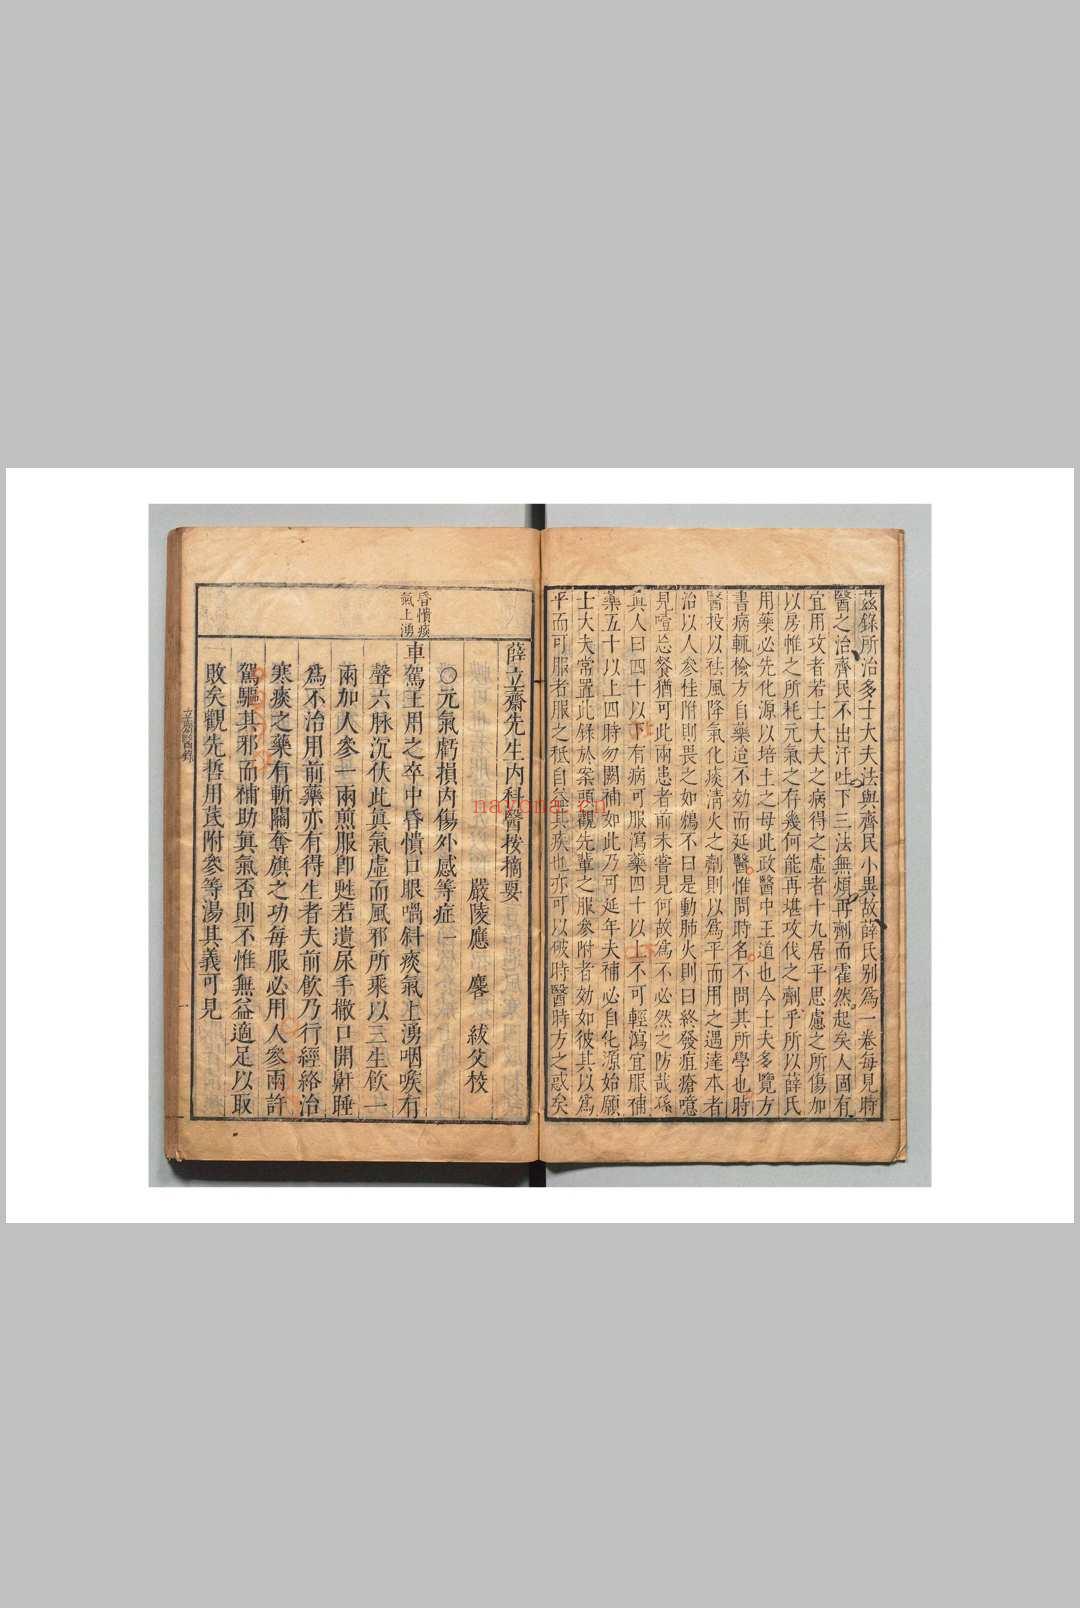 茲錄所治多士大夫法與齊民小異故薛氏別爲一卷每見時
醫之治齊民不出汗吐下三法無煩再劑而霍然起矣人固有
宜用攻者若士大夫之病得之虛者十九居平思慮之所傷加
以房帷之所耗元氣之存幾何能再堪攻伐之劑乎所以薛氏
用藥必先化源以培土之母此政醫中王道也今士夫多覽方
書病輒檢方自藥迨不効而延醫惟問時名不問其所學也時
醫投以祛風降氣化痰清火之劑則以爲平而用之遇達本者
治以人參佳附則畏之如鴆不曰是動肺火則曰終發疽瘡噫
見噎忘餐猶可此兩患者前未嘗見何故爲不必然之防哉孫
眞人曰四十以下有病可服瀉藥四十以上不可輕瀉宜服補
藥五十以上四時勿闕補如此乃可延年夫補必自化源始願
士大夫常置此錄於案頭觀先輩之服參附者効如彼其以爲
平而可服者服之秪自益其疾也亦可以破時醫時方之惑矣
薛立齋先生內科醫按摘要
嚴陵應 麐 紱父校
○元氣虧損內傷外感等症一
昏憒痰
氣上湧
車駕王用之卒中昏憒口眼喎斜痰氣上湧咽喉有
聲六脉沉伏此眞氣虛而風邪所乘以三生飮一
兩加人參一兩煎服卽甦若遺尿手撒口開鼾睡
爲不治用前藥亦有得生者夫前飮乃行經絡治
寒痰之藥有斬關奪旗之功每服必用人參兩許
駕驅其邪而補助眞氣否則不惟無益適足以取
敗矣觀先哲用芪附參等湯其義可見
立齋醫錄
一
nayona.cn